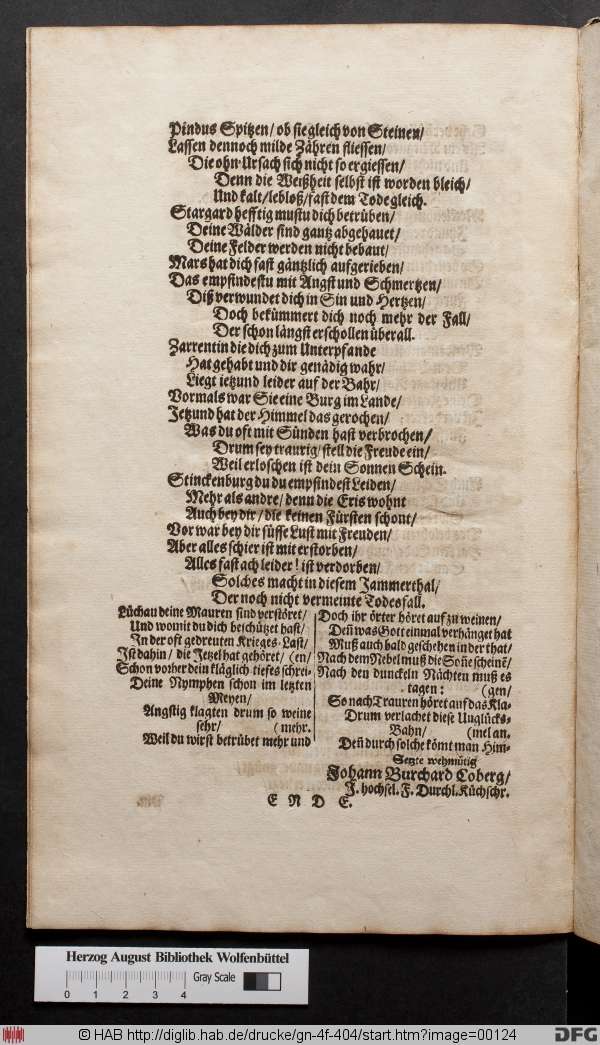 Pindus Spitzen / ob sie gleich von Steinen /
Lassen dennoch milde Zähren fliessen /
Die ohn-Ursach sich nicht so ergiessen /
Denn die Weißheit selbst ist worden bleich /
Und kalt / lebloß / fast dem Tode gleich.
Stargard hefftig mustu dich betrüben /
Deine Wälder sind gantz abgehauet /
Deine Felder werden nicht bebaut /
Mars hat dich fast gäntzlich aufgerieben /
Das empfindestu mit Angst und Schmertzen /
Diß verwundet dich in Sin und Hertzen /
Doch bekümmert dich noch mehr der Fall /
Der schon längst erschollen überall.
Zarrentin die dich zum Unterpfande
Hat gehabt und dir genädig wahr /
Liegt ietzund leider auf der Bahr /
Vormals war Sie eine Burg im Lande /
Jetzund hat der Himmel das gerochen /
Was du oft mit Sünden hast verbrochen /
Drum sey traurig / stell die Freude ein /
Weil erloschen ist dein Sonnen Schein.
Stinckenburg du du empfindest Leiden /
Mehr als andre / denn die Eris wohnt
Auch bey dir / die keinen Fürsten schont /
Vor war bey dir süsse Lust mit Freuden /
Aber alles schier ist mit erstorben /
Alles fast ach leider! ist verdorben /
Solches macht in diesem Jammerthal /
Der noch nicht vermeinte Todesfall.
Lüchau deine Mauren sind verstöret /
Und womit du dich beschützet hast /
In der oft gedreuten Krieges-Last /
Ist dahin / die Jetzel hat gehöret / (en /
Schon vorher dein kläglich tiefes schrei-
Deine Nymphen schon im letzten
Meyen /
Angstig klagten drum so weine
sehr / (mehr.
Weil du wirst betrübet mehr und
Doch ihr örter höret auf zu weinen /
Deñ was Gott einmal verhänget hat
Muß auch bald geschehen in der that /
Nach dem Nebel muß die Soñe scheinē /
Nach den dunckeln Nächten muß es
tagen: (gen /
So nach Trauren höret auf das Kla-
Drum verlachet diese Uuglücks-
Bahn / (mel an.
Deñ durch solche kömt man Him-
Setzte wehmütig
Johann Burchard Coberg /
J. hochsel. F. Durchl. Küchschr.
E N D E.
Herzog August Bibliothek Wolfenbüttel
Gray Scale
0 1 2 3 4
© HAB http://diglib.hab.de/drucke/gn-4f-404/start.htm?image=00124
DFG